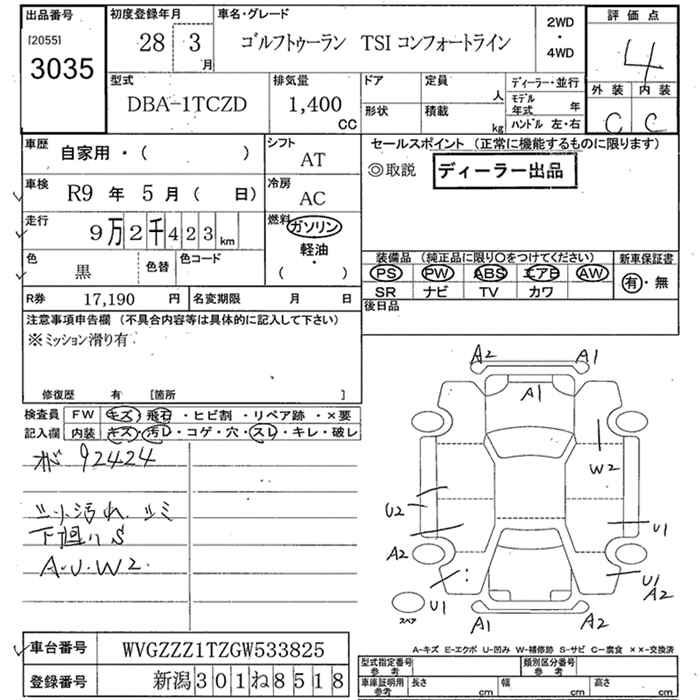 出品番号
[2055]
3035
初度登録年月
28 3 月
車名・グレード
ゴルフトゥーラン TSI コンフォートライン
2WD
・
4WD
評価点
4
外装 内装
C C
型式
DBA-1TCZD
排気量
1,400
CC
ドア
定員
人
形状
積載
kg
ディーラー・並行
モデル年式 年
ハンドル 左・右
車歴
自家用・( )
シフト
AT
車検
R9 年 5 月 ( 日)
冷房
AC
走行
9万2千423 km
燃料
ガソリン
軽油
・
( )
色
黒
色替
色コード
R券
17,190 円
名変期限 月 日
セールスポイント (正常に機能するものに限ります)
◎取説 ディーラー出品
装備品 (純正品に限り○をつけてください)
PS PW ABS エアB AW
SR ナビ TV カワ
新車保証書
有・無
後日品
注意事項申告欄 (不具合内容等は具体的に記入して下さい)
※ミッション滑り有
修復歴 有 [箇所 ]
検査員
記入欄
FW キズ・飛石・ヒビ割・リペア跡・×要
内装 キズ・汚レ・コゲ・穴・スレ・キレ・破レ
92424
汚れ
下廻りS
A.U.W2
A2 A1
A1
W2
U2
A2
U1
U1
A2
U1
A1 A2
スペア
A-キズ E-エクボ U-凹み W-補修跡 S-サビ C-腐食 ××-交換済
車台番号
WVGZZZ1TZGW533825
登録番号
新潟301ね8518
型式指定番号
参考
類別区分番号
参考
車庫証明用
参考
長さ cm 幅 cm 高さ cm